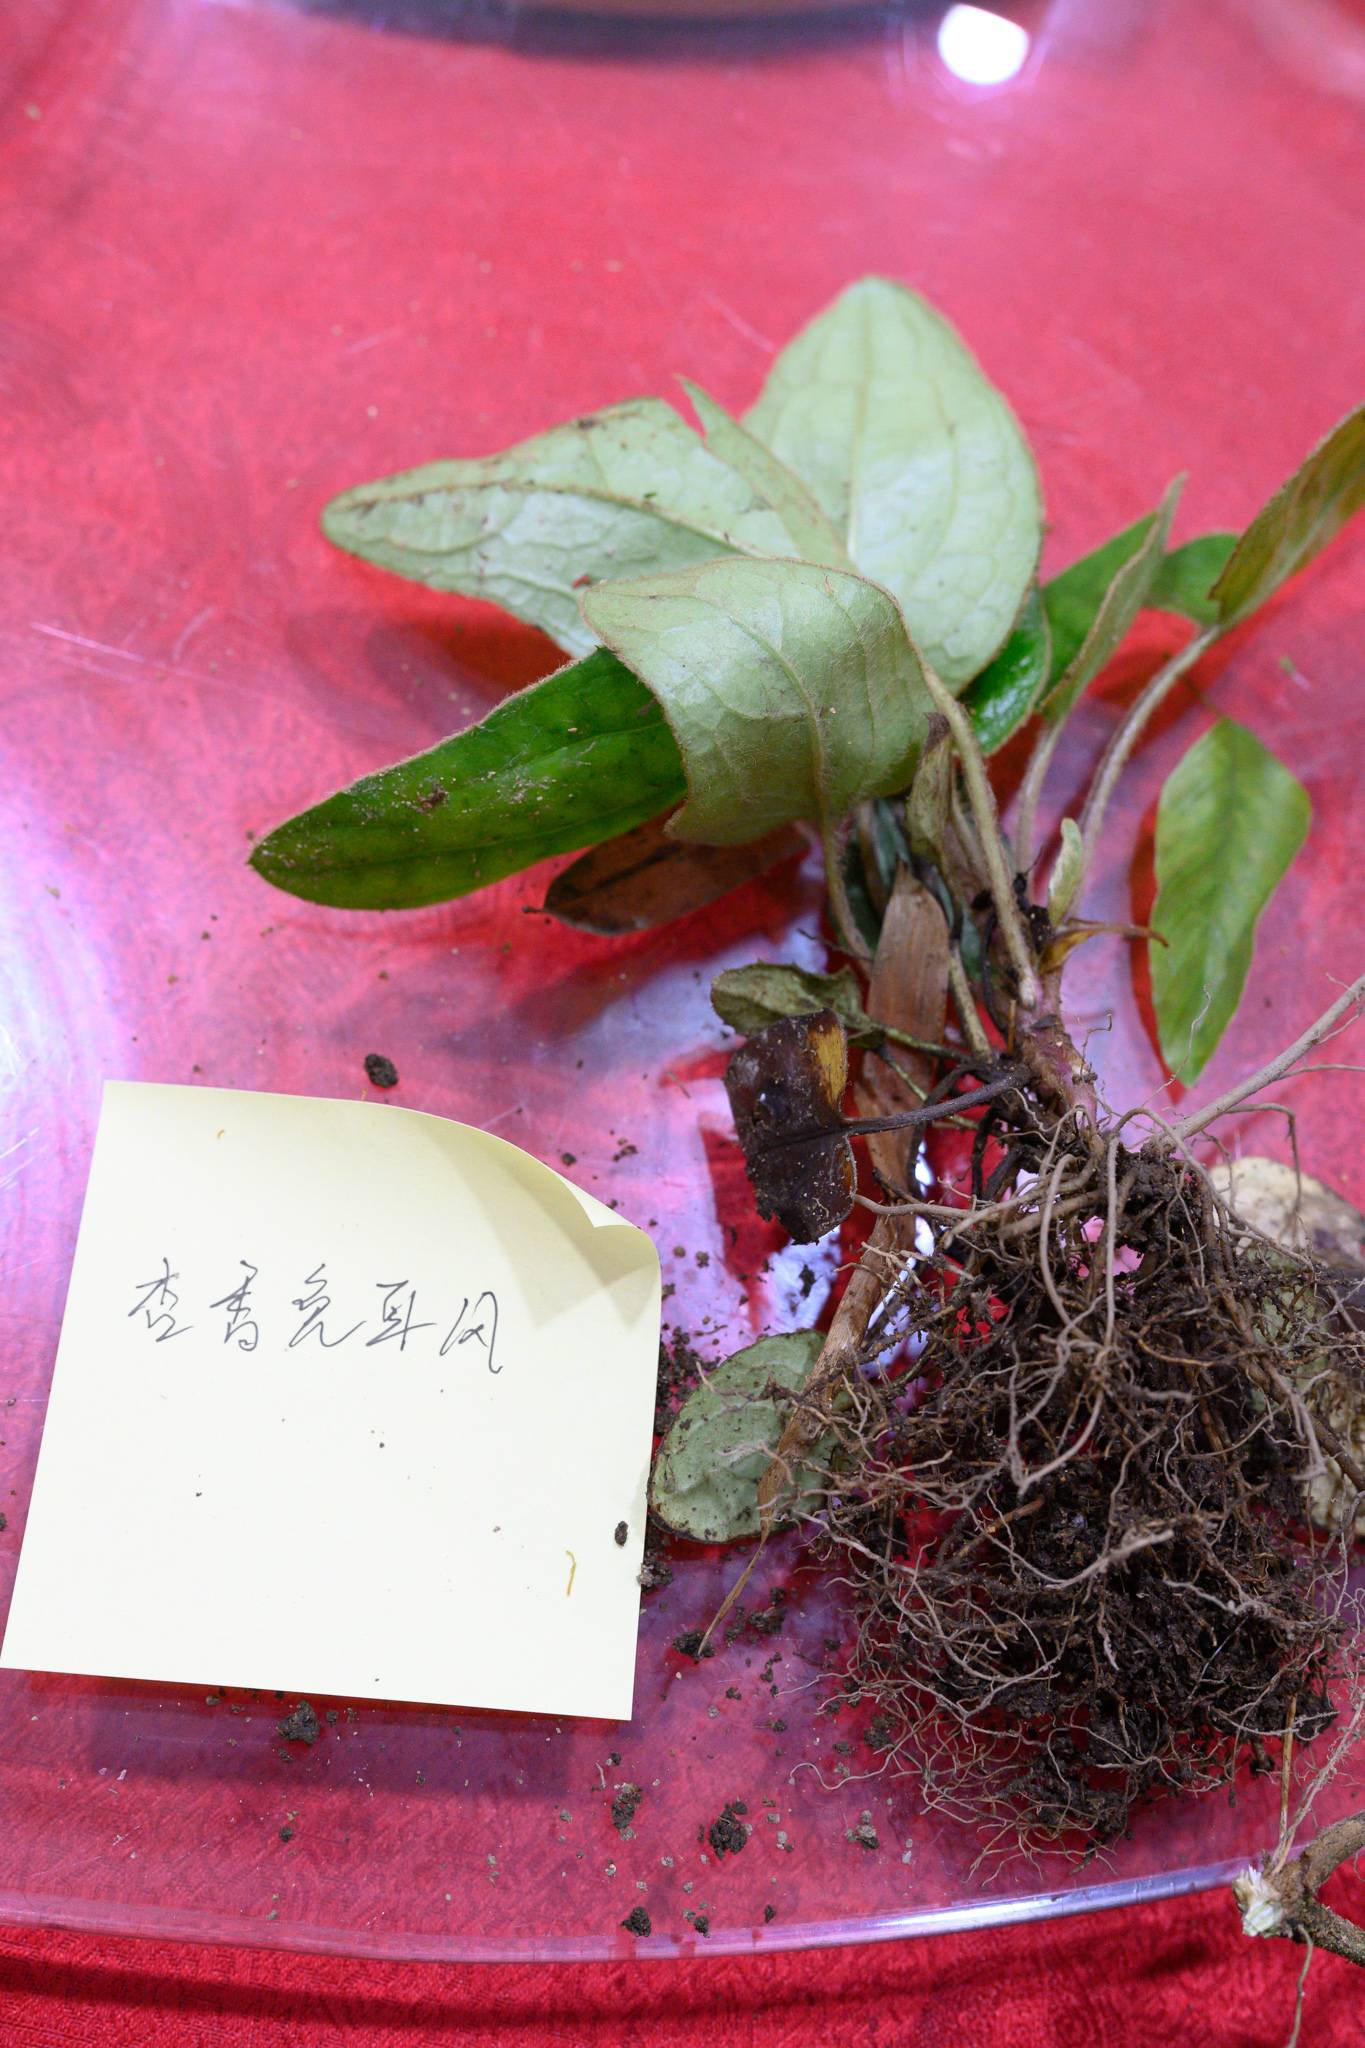 杏香兔耳风